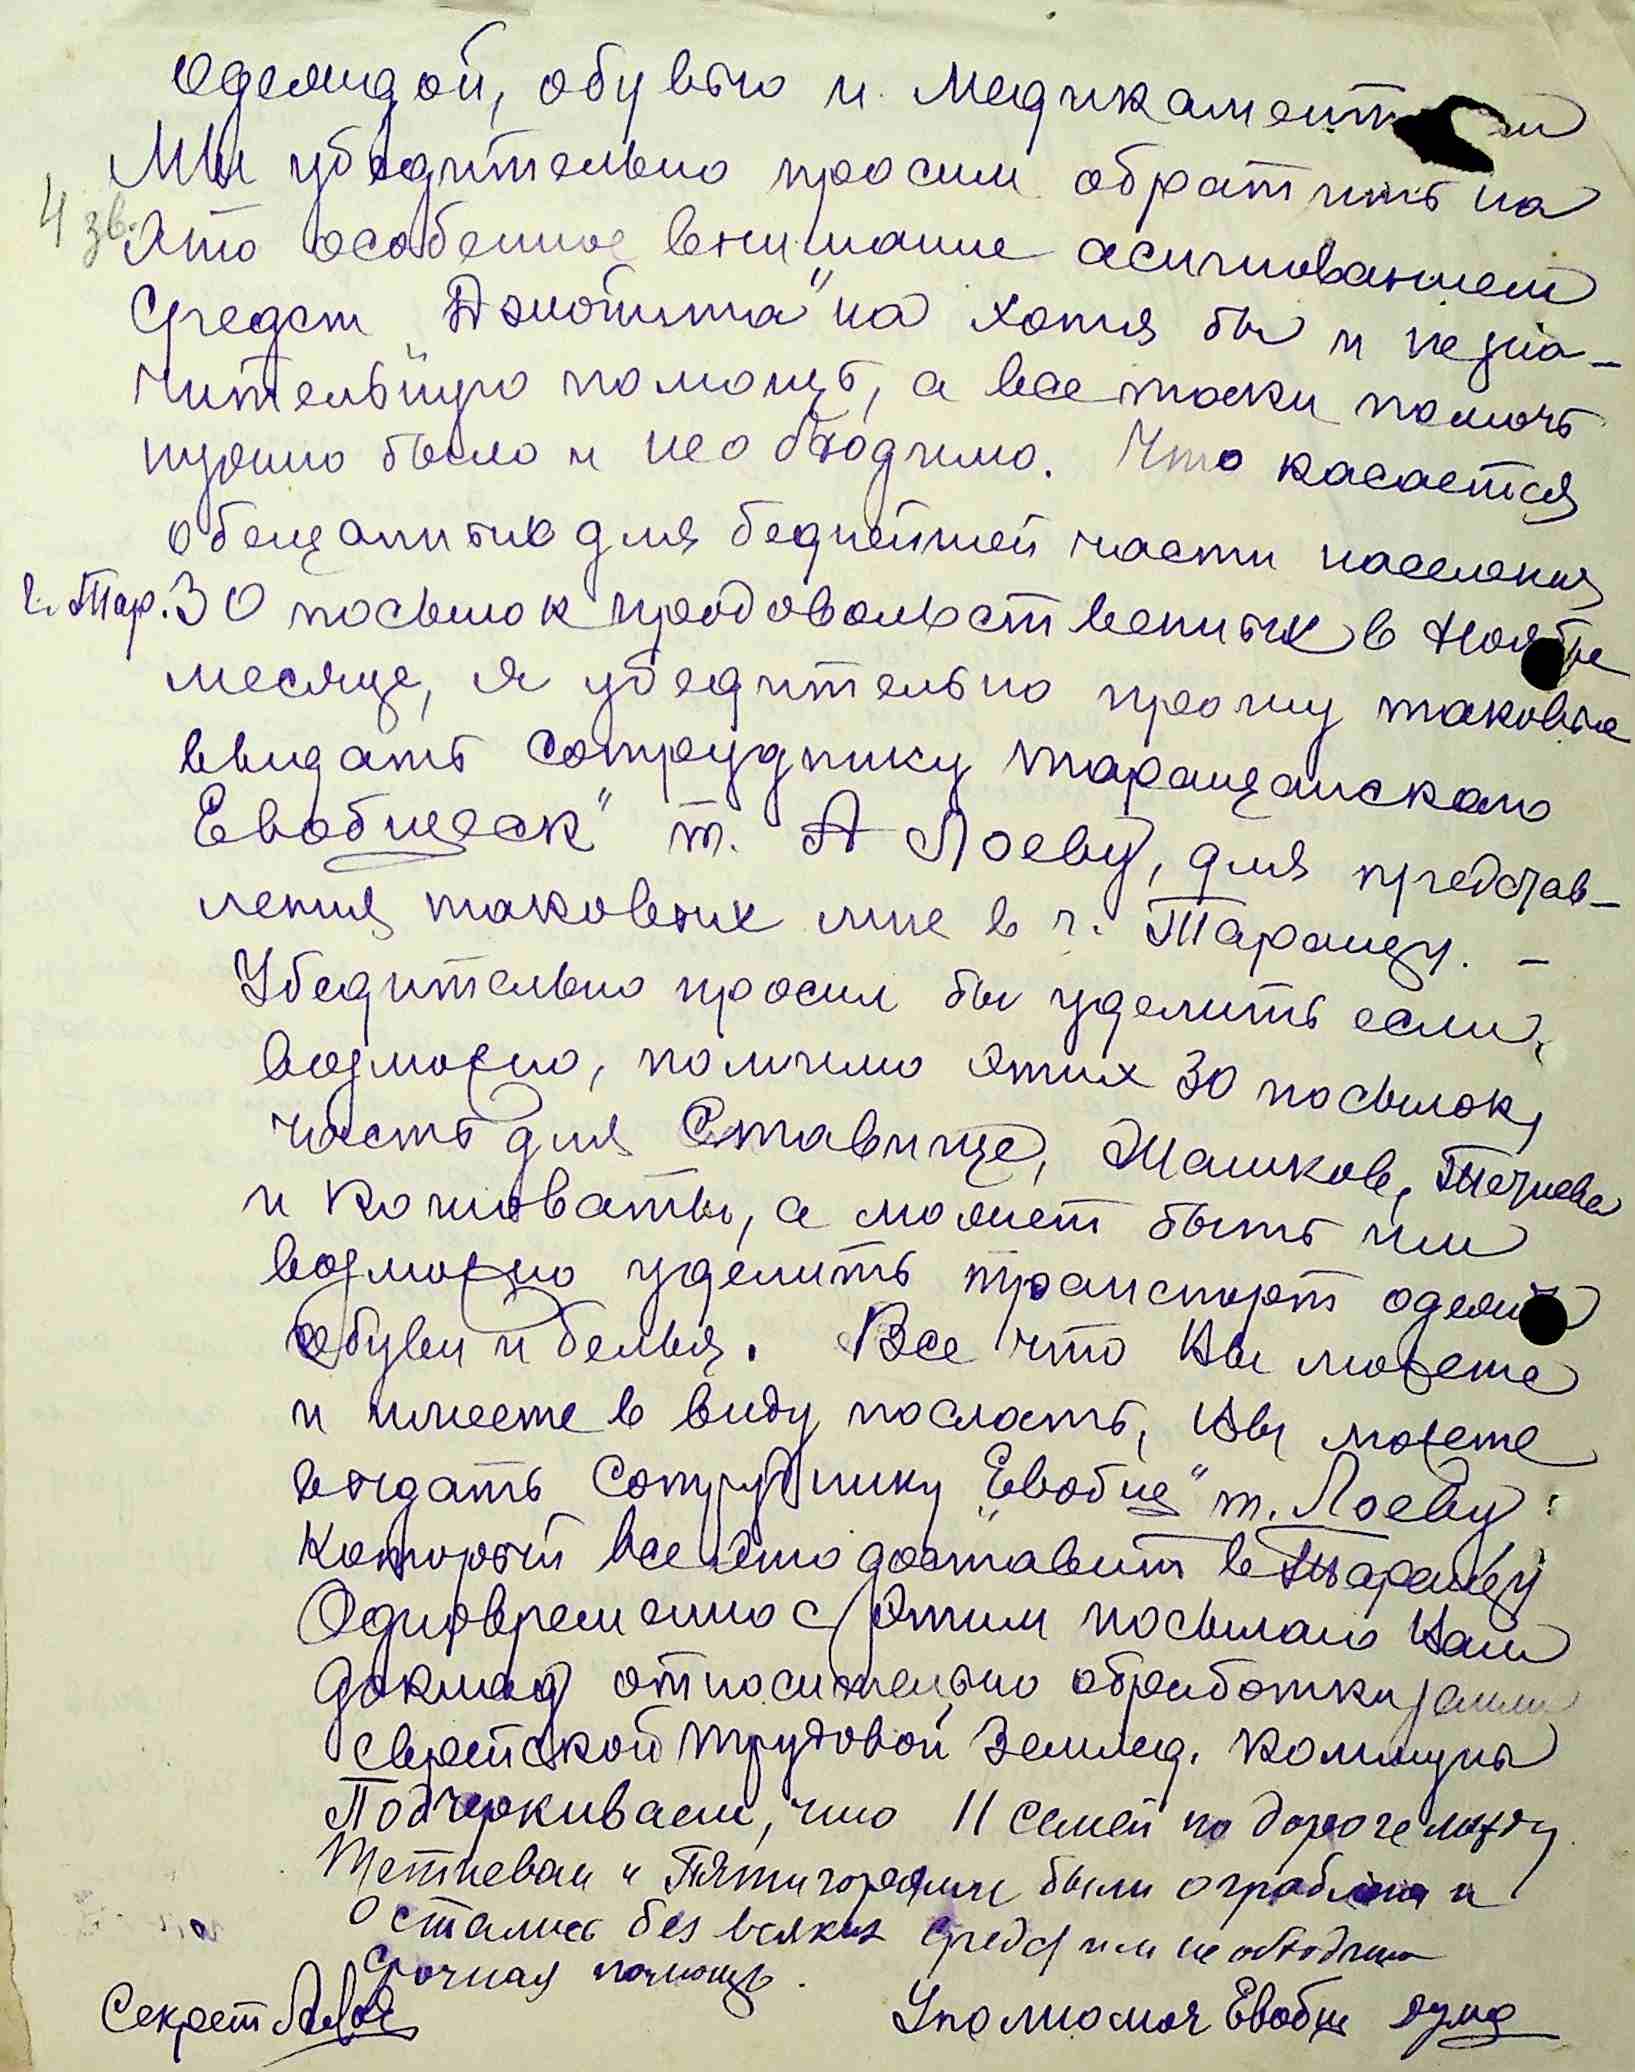 одеждой, обувью и медикамент
Мы убедительно просим обратить на
4 зв.
это особенное внимание асигнованием
средст „Джойнта" на хотя бы и незна-
чительную помощь, а все таки помочь
нужно было и необходимо. Что касается
обещанных для беднейшей части населения
г. Тар. 30 посылок продовольственных в Ноябре
месяце, я убедительно прошу таковые
выдать сотруднику таращанского
Евобщеск" т. А Лоеву, для представ-
ления таковых мне в г. Таращу. -
Убедительно просил бы уделить если,
возможно, помимо этих 30 посылок,
часть для Ставище, Жашков, Тетиева
и Конюваты, а может быть им
возможно уделить транспорт одежи
обуви и белья. Все что Вы можете
и имеете в виду послать, Вы можете
выдать сотруднику „Евобще" т. Лоеву
который все это доставит в Таращу
Одновременно с этим посылаю Вам
доклад относительно обработки земли
Еврейской трудовой Землед. Коммуны
Подчеркиваем, что 11 семей по дороге между
Тетиевом и Пятигорами были ограблены и
остались без всяких средст им необходима
срочная помощь.
Секрет
Уполномоч Евобще